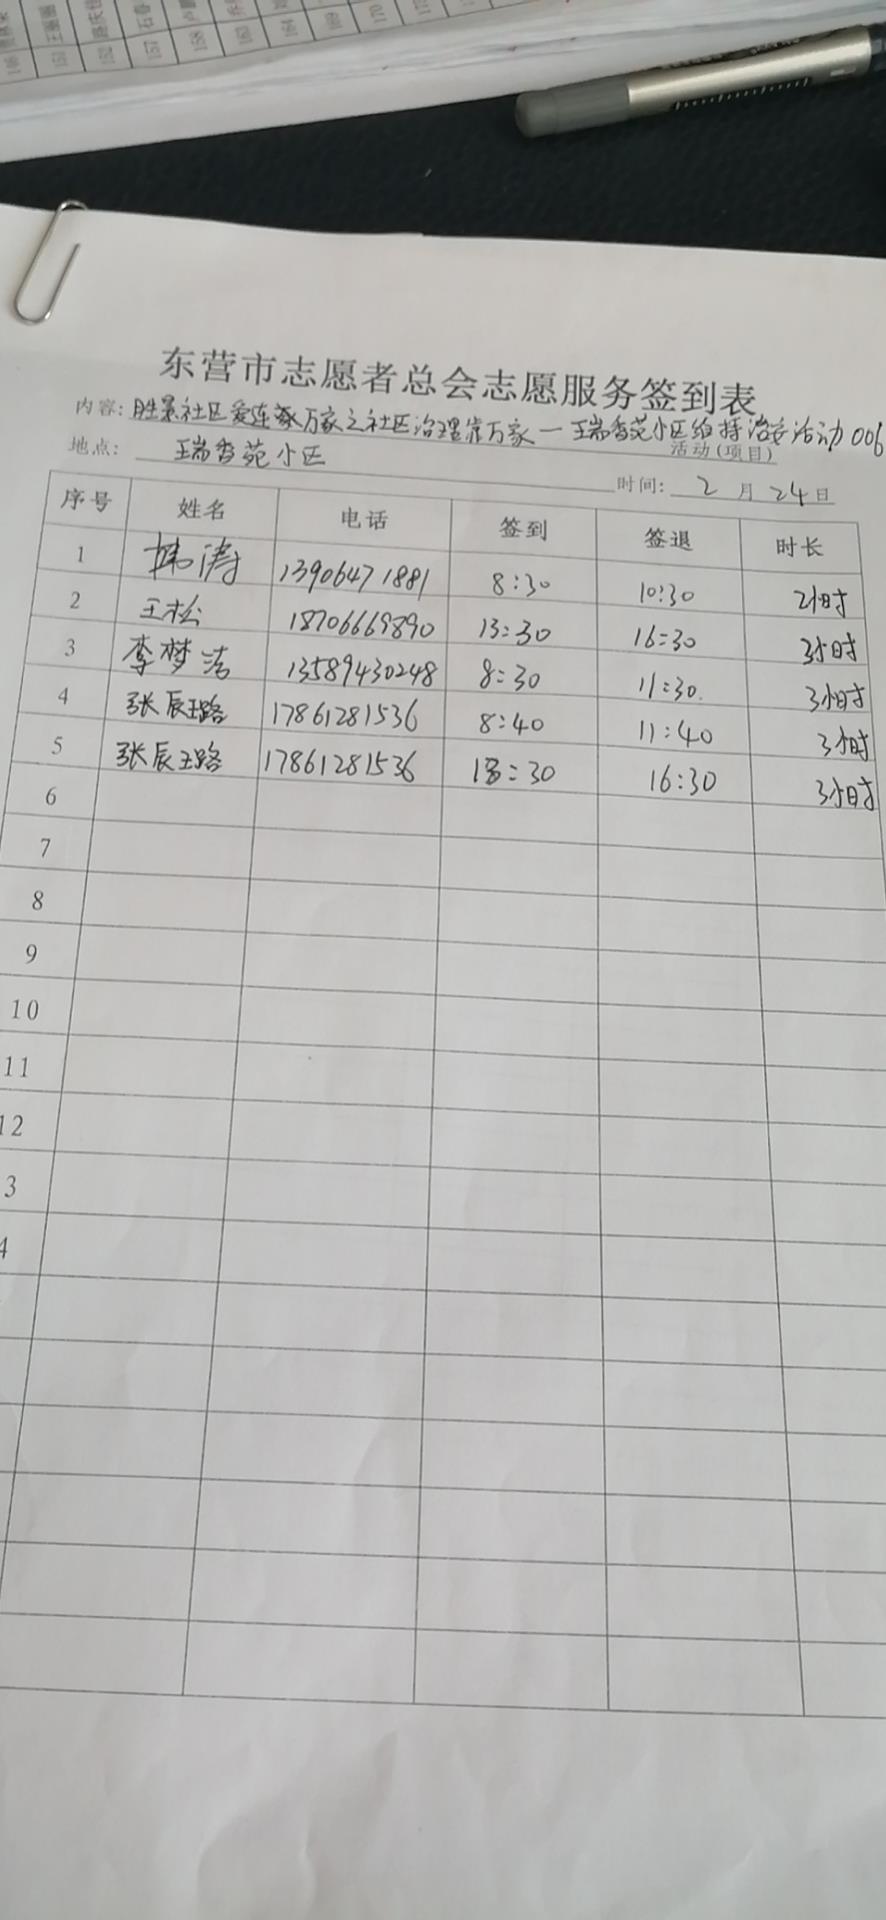 146
151 王丽丽
152
157 石春
158
163
164
169
170
东营市志愿者总会志愿服务签到表
内容: 胜景社区爱连万家之社区治理靠万家一瑞香苑小区维持治安活动006
活动(项目)
地点: 瑞香苑小区
时间: 2 月 24 日
序号 姓名 电话 签到 签退 时长
1 韩涛 13906471881 8:30 10:30 2小时
2 王松 18706669890 13:30 16:30 3小时
3 李梦洁 13589430248 8:30 11:30 3小时
4 张辰璐 17861281536 8:40 11:40 3小时
5 张辰璐 17861281536 13:30 16:30 3小时
6
7
8
9
10
11
12
3
4